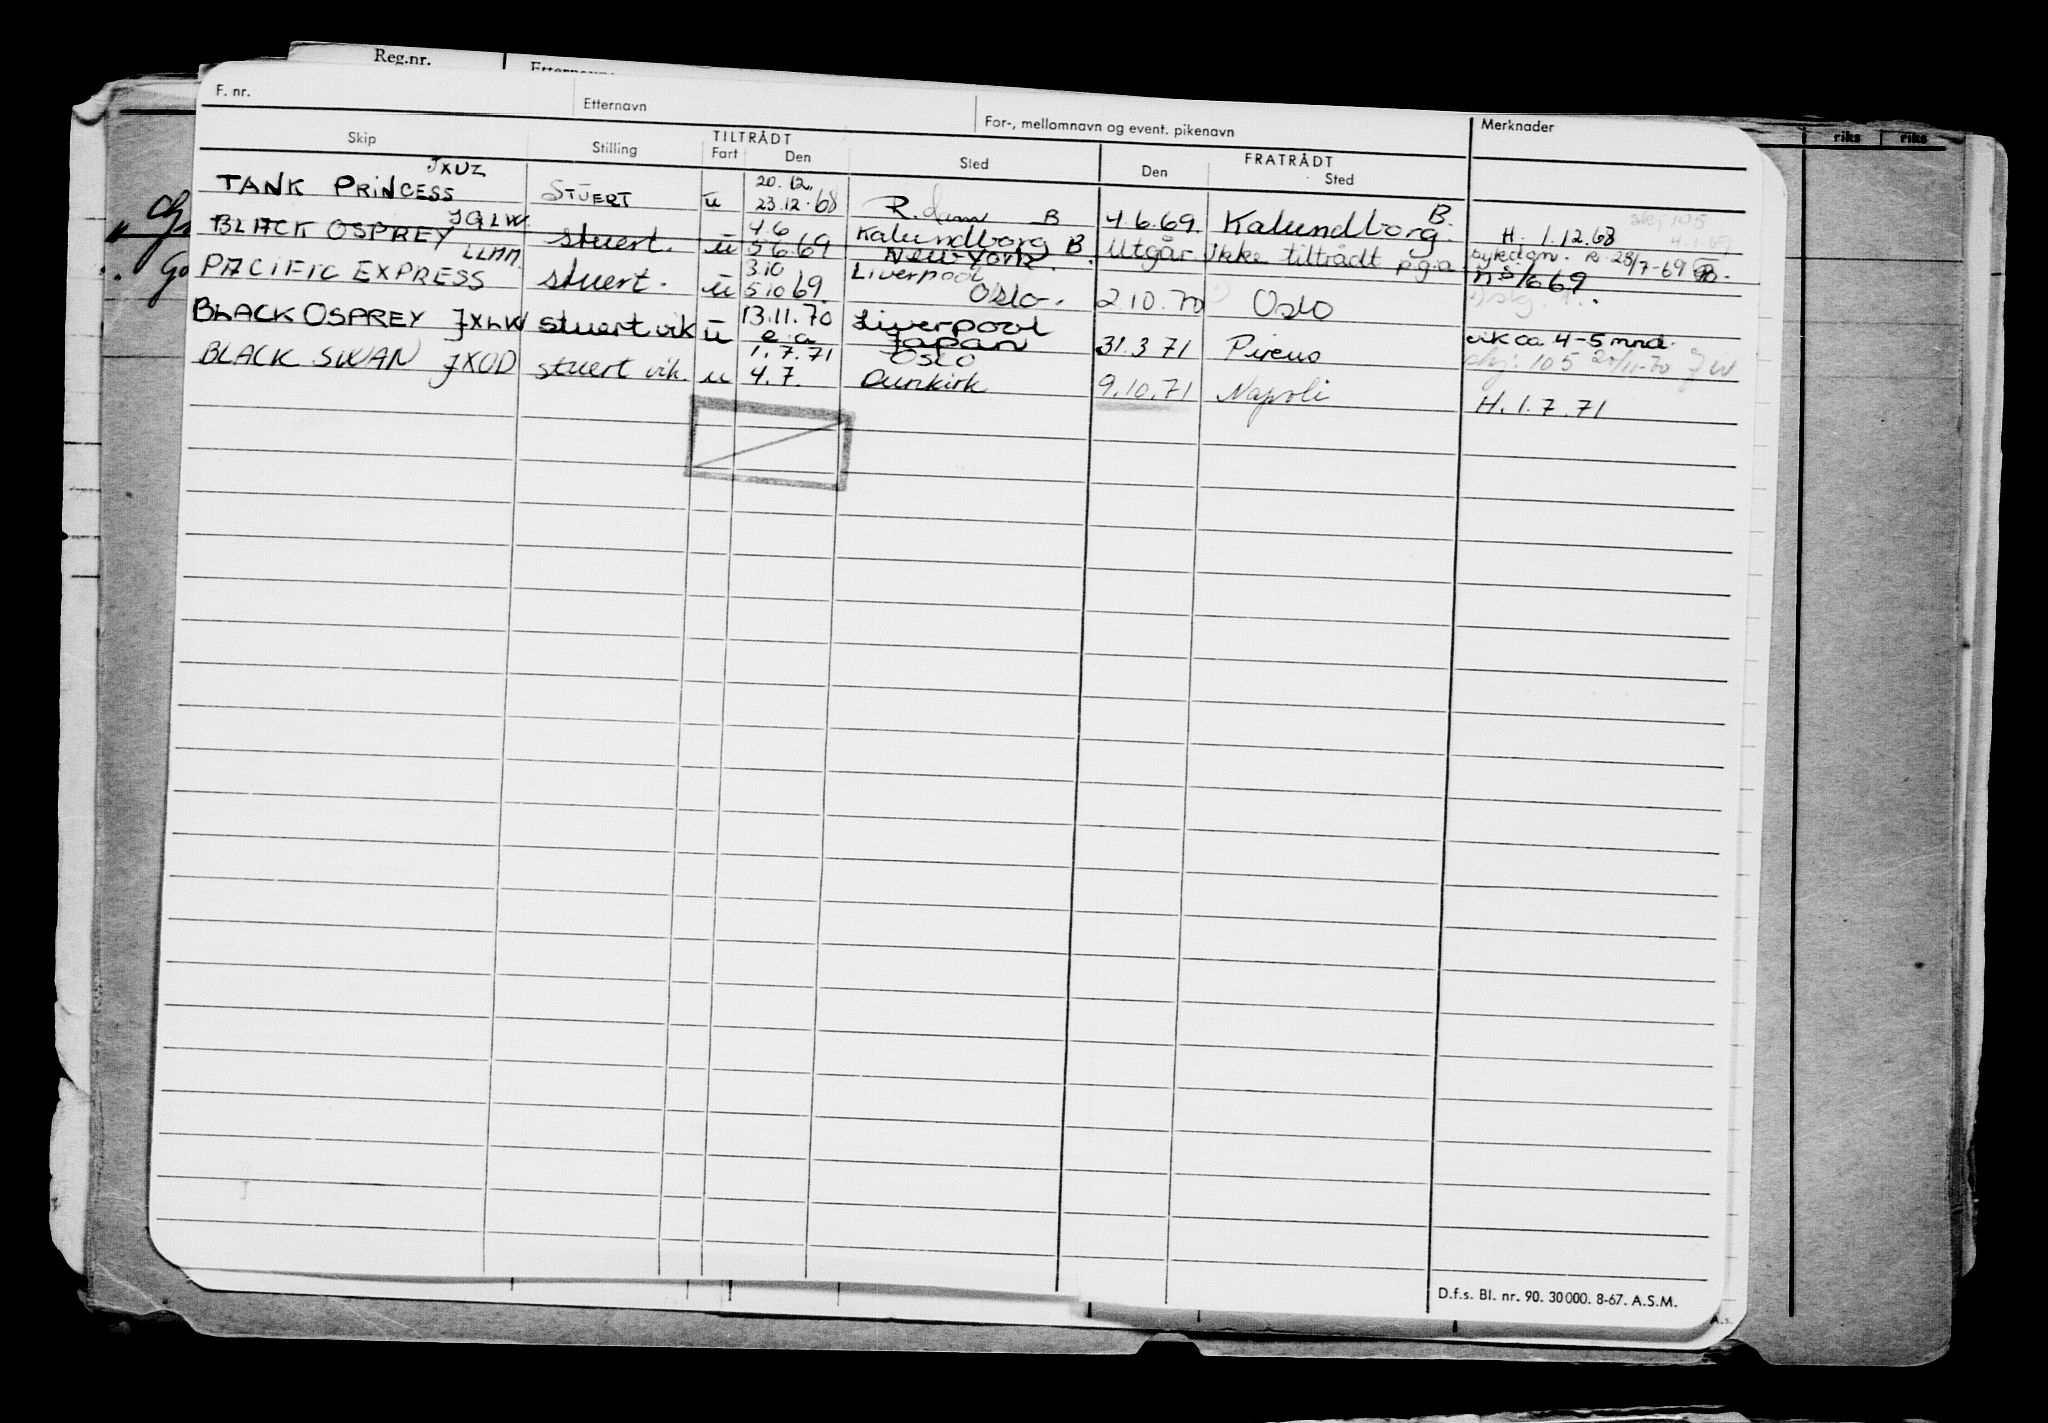 Reg.nr.
F. nr. Etternavn For-, mellomnavn og event. pikenavn Merknader riks riks
Skip Stilling TILTRÅDT Fart Den Sted FRATRÅDT Den Sted
JXUZ 20.12.
TANK PRINCESS STUERT u 23.12.68 R.dam B 4.6.69. Kalundborg B. H. 1.12.68 skj 105
JGLW. 4.6 Kalundborg B 4.1.69
BLACK OSPREY stuert. u 5.6.69 New York. Utgår ikke tiltrådt p.g.a. sykedom. 28/7-69
LLMM. 3.10 Liverpool
PACIFIC EXPRESS stuert. u 5.10 69. Oslo. 2.10.70 Oslo
13.11.70 Liverpool
BLACK OSPREY JXLW stuert vik u e.a Japan 31.3 71 Pireus vik ca. 4-5 mnd.
1.7.71 Oslo skj: 105 20/11-70
BLACK SWAN JXOD stuert vik. u 4.7. Dunkirk 9.10.71 Napoli H. 1.7.71
D.f.s. Bl. nr. 90. 30000. 8-67. A.S.M.
A.s.